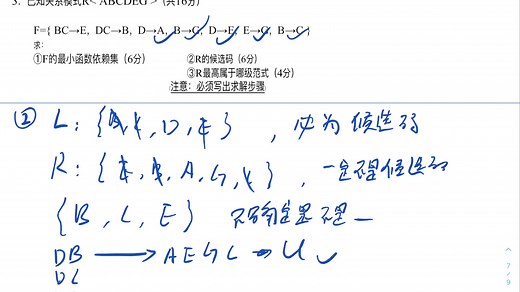 3. 已知关系模式R< ABCDEG > (共16分)
F={ BC→E, DC→B, D→A, B→G, D→E, E→G, B→C }
求:
①F的最小函数依赖集（6分） ②R的候选码（6分）
③R最高属于哪级范式（4分）
注意：必须写出求解步骤
② L: { , , D, }, 必为候选码
R: { , , A, G, }, 一定不是候选码
{B, C, E} 不确定是不是
DB → AEGC ⇒ U ✓
DC
7/9